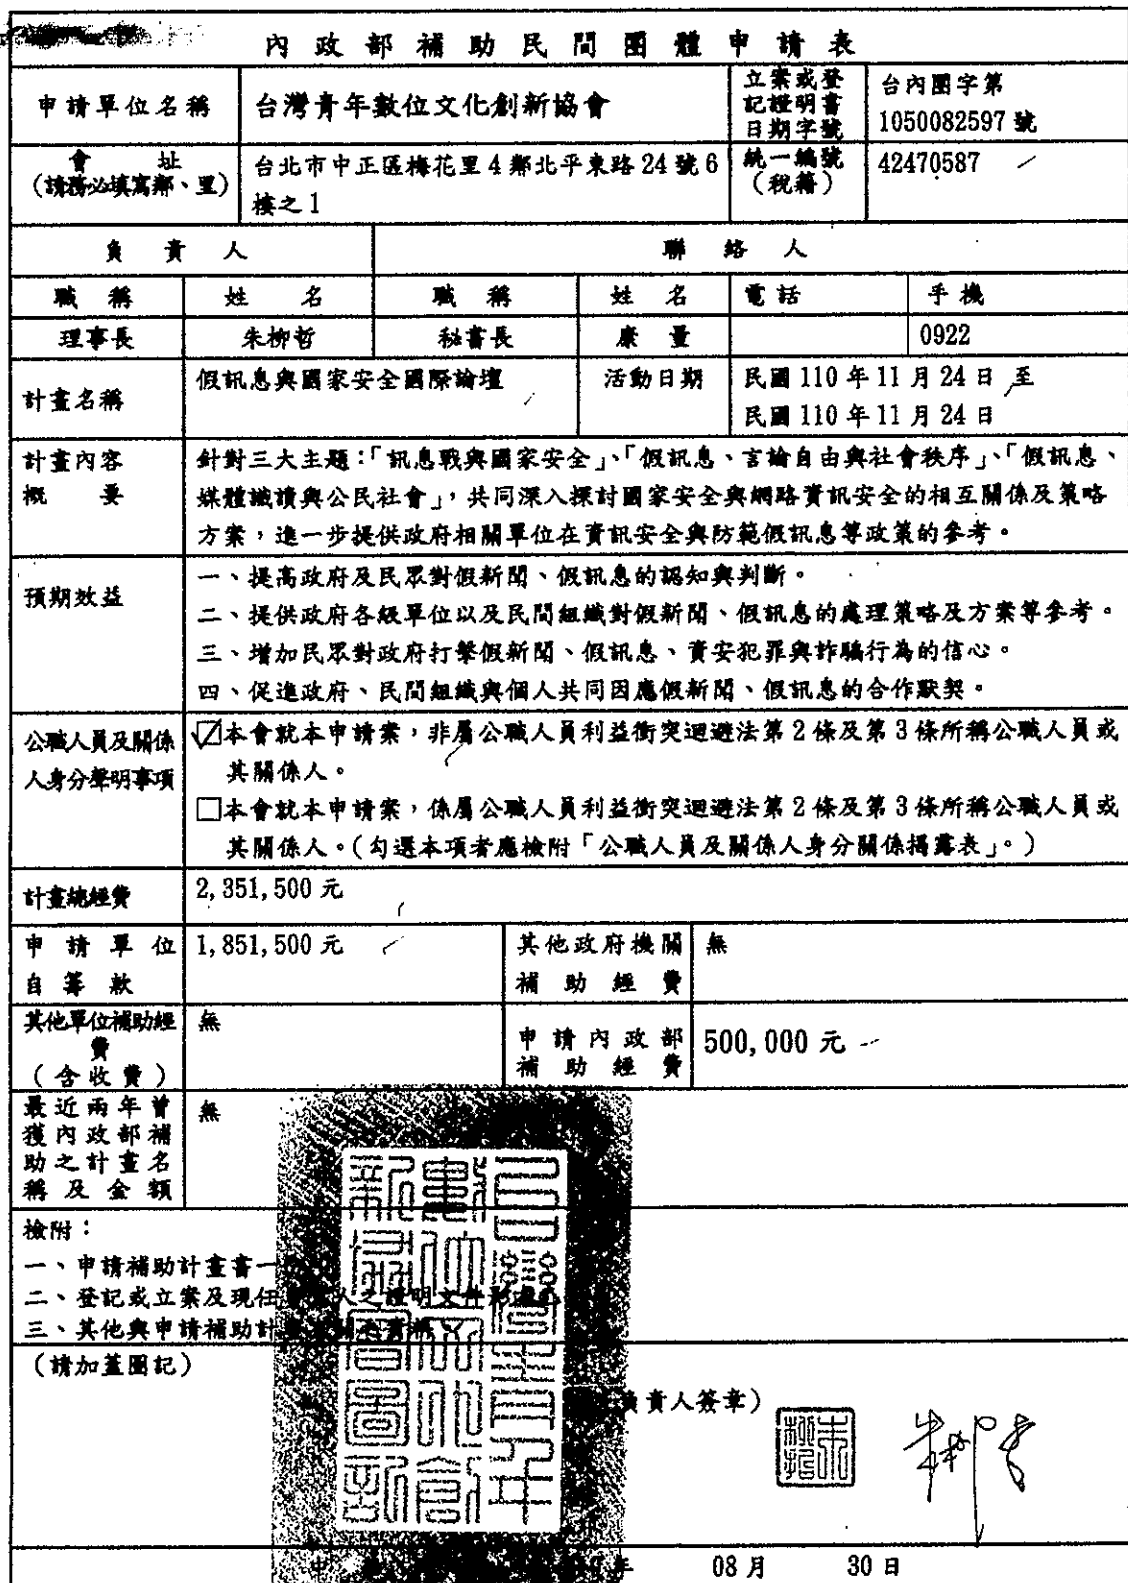 內政部補助民間團體申請表
申請單位名稱 台灣青年數位文化創新協會 立案或登記證明書日期字號 台內團字第
1050082597 號
會址
(請務必填寫鄰、里) 台北市中正區梅花里 4 鄰北平東路 24 號 6
樓之 1 統一編號
(稅籍) 42470587
負責人 聯絡人
職稱 姓名 職稱 姓名 電話 手機
理事長 朱柳哲 秘書長 康量 0922
計畫名稱 假訊息與國家安全國際論壇 活動日期 民國 110 年 11 月 24 日 至
民國 110 年 11 月 24 日
計畫內容
概要 針對三大主題:「訊息戰與國家安全」、「假訊息、言論自由與社會秩序」、「假訊息、
媒體識讀與公民社會」,共同深入探討國家安全與網路資訊安全的相互關係及策略
方案,進一步提供政府相關單位在資訊安全與防範假訊息等政策的參考。
預期效益 一、提高政府及民眾對假新聞、假訊息的認知與判斷。
二、提供政府各級單位以及民間組織對假新聞、假訊息的處理策略及方案等參考。
三、增加民眾對政府打擊假新聞、假訊息、資安犯罪與詐騙行為的信心。
四、促進政府、民間組織與個人共同因應假新聞、假訊息的合作默契。
公職人員及關係
人身分聲明事項 ☑本會就本申請案,非屬公職人員利益衝突迴避法第 2 條及第 3 條所稱公職人員或
其關係人。
□本會就本申請案,係屬公職人員利益衝突迴避法第 2 條及第 3 條所稱公職人員或
其關係人。(勾選本項者應檢附「公職人員及關係人身分關係揭露表」。)
計畫總經費 2,351,500 元
申請單位
自籌款 1,851,500 元 其他政府機關
補助經費 無
其他單位補助經
費
(含收費) 無 申請內政部
補助經費 500,000 元
最近兩年曾
獲內政部補
助之計畫名
稱及金額 無
檢附:
一、申請補助計畫書一
二、登記或立案及現任 人之證明文件影
三、其他與申請補助計
(請加蓋圖記)
負責人簽章)
年 08 月 30 日